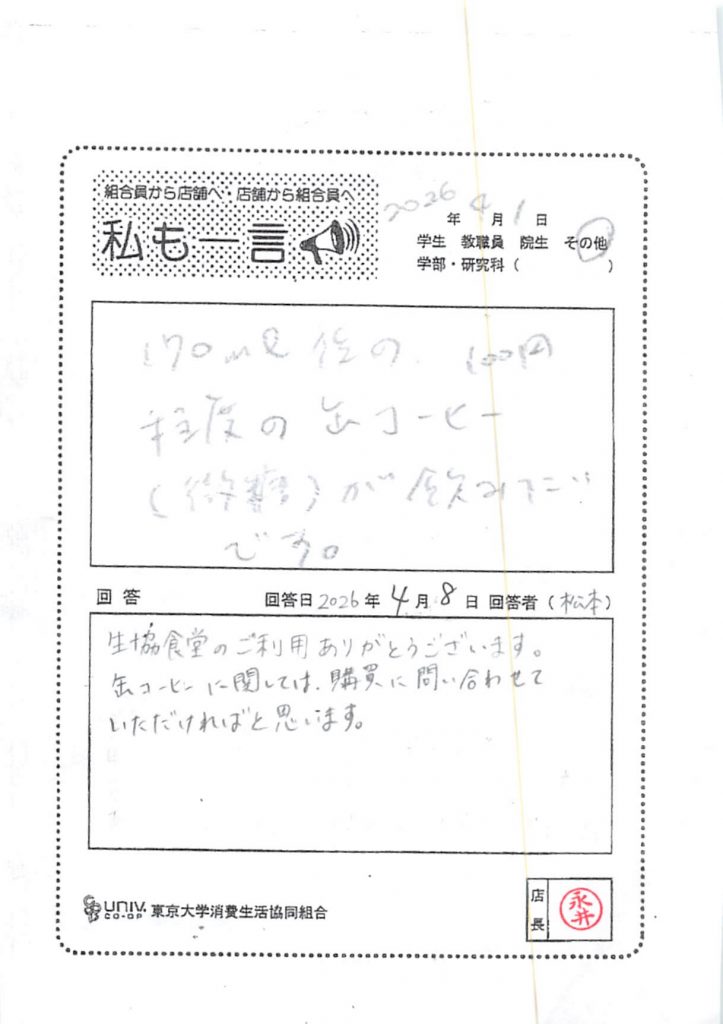 組合員から店舗へ・店舗から組合員へ
私も一言
2026年4月1日
学生 教職員 院生 その他
学部・研究科( )
170ml位の 100円
程度の缶コーヒー
(微糖)が飲みたい
です。
回答 回答日2026年4月8日 回答者(松本)
生協食堂のご利用ありがとうございます。
缶コーヒーに関しては、購買に問い合わせて
いただければと思います。
UNIV. CO-OP 東京大学消費生活協同組合
店長 永井